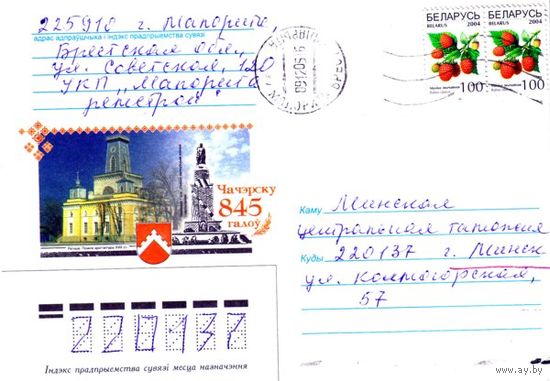 225910 г. Малорита,
адрас адпраўшчыка і індэкс прадпрыемства сувязі
Брестская обл.,
ул. Советская, 120
УКП „Малорита
ремстрой"
БЕЛАРУСЬ
BELARUS 2004
100
БЕЛАРУСЬ
BELARUS 2004
100
Чачэрску
845
гадоў
Каму Минская
центральная таможня
Куды 220137 г. Минск
ул.
57
220137
Індэкс прадпрыемства сувязі месца назначэння
www.ay.by